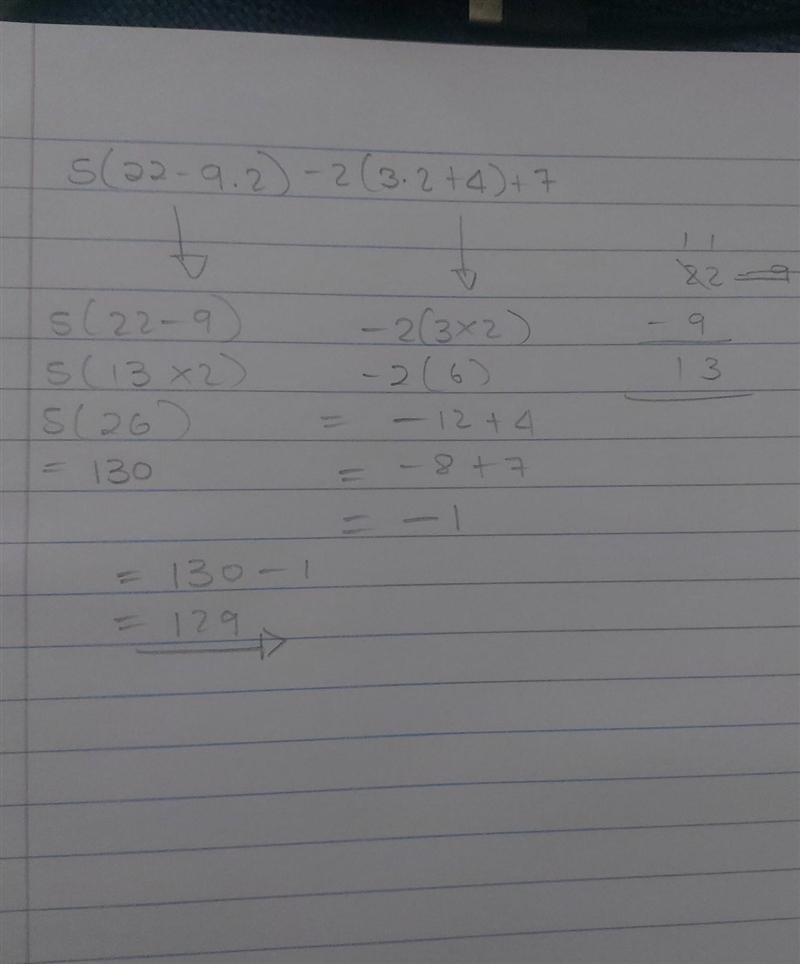 5(22-9.2)-2(3·2+4)+7
1 1
22 - 9
5(22-9) -2(3×2) -9
5(13×2) -2(6) 13
5(26) = -12+4
= 130 = -8+7
= -1
= 130-1
= 129